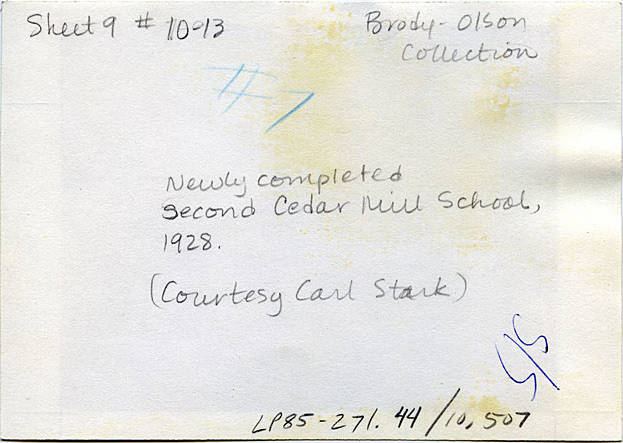 Sheet 9 # 10-13
Brody-Olson
Collection
#7
Newly completed
second Cedar Mill School,
1928.
(Courtesy Carl Stark)
S/S
LP85-271.44/10,507